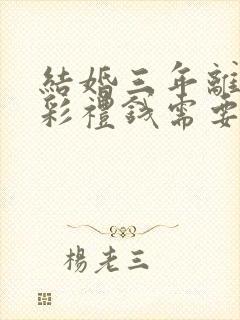 結婚三年離
彩禮錢需要
楊老三